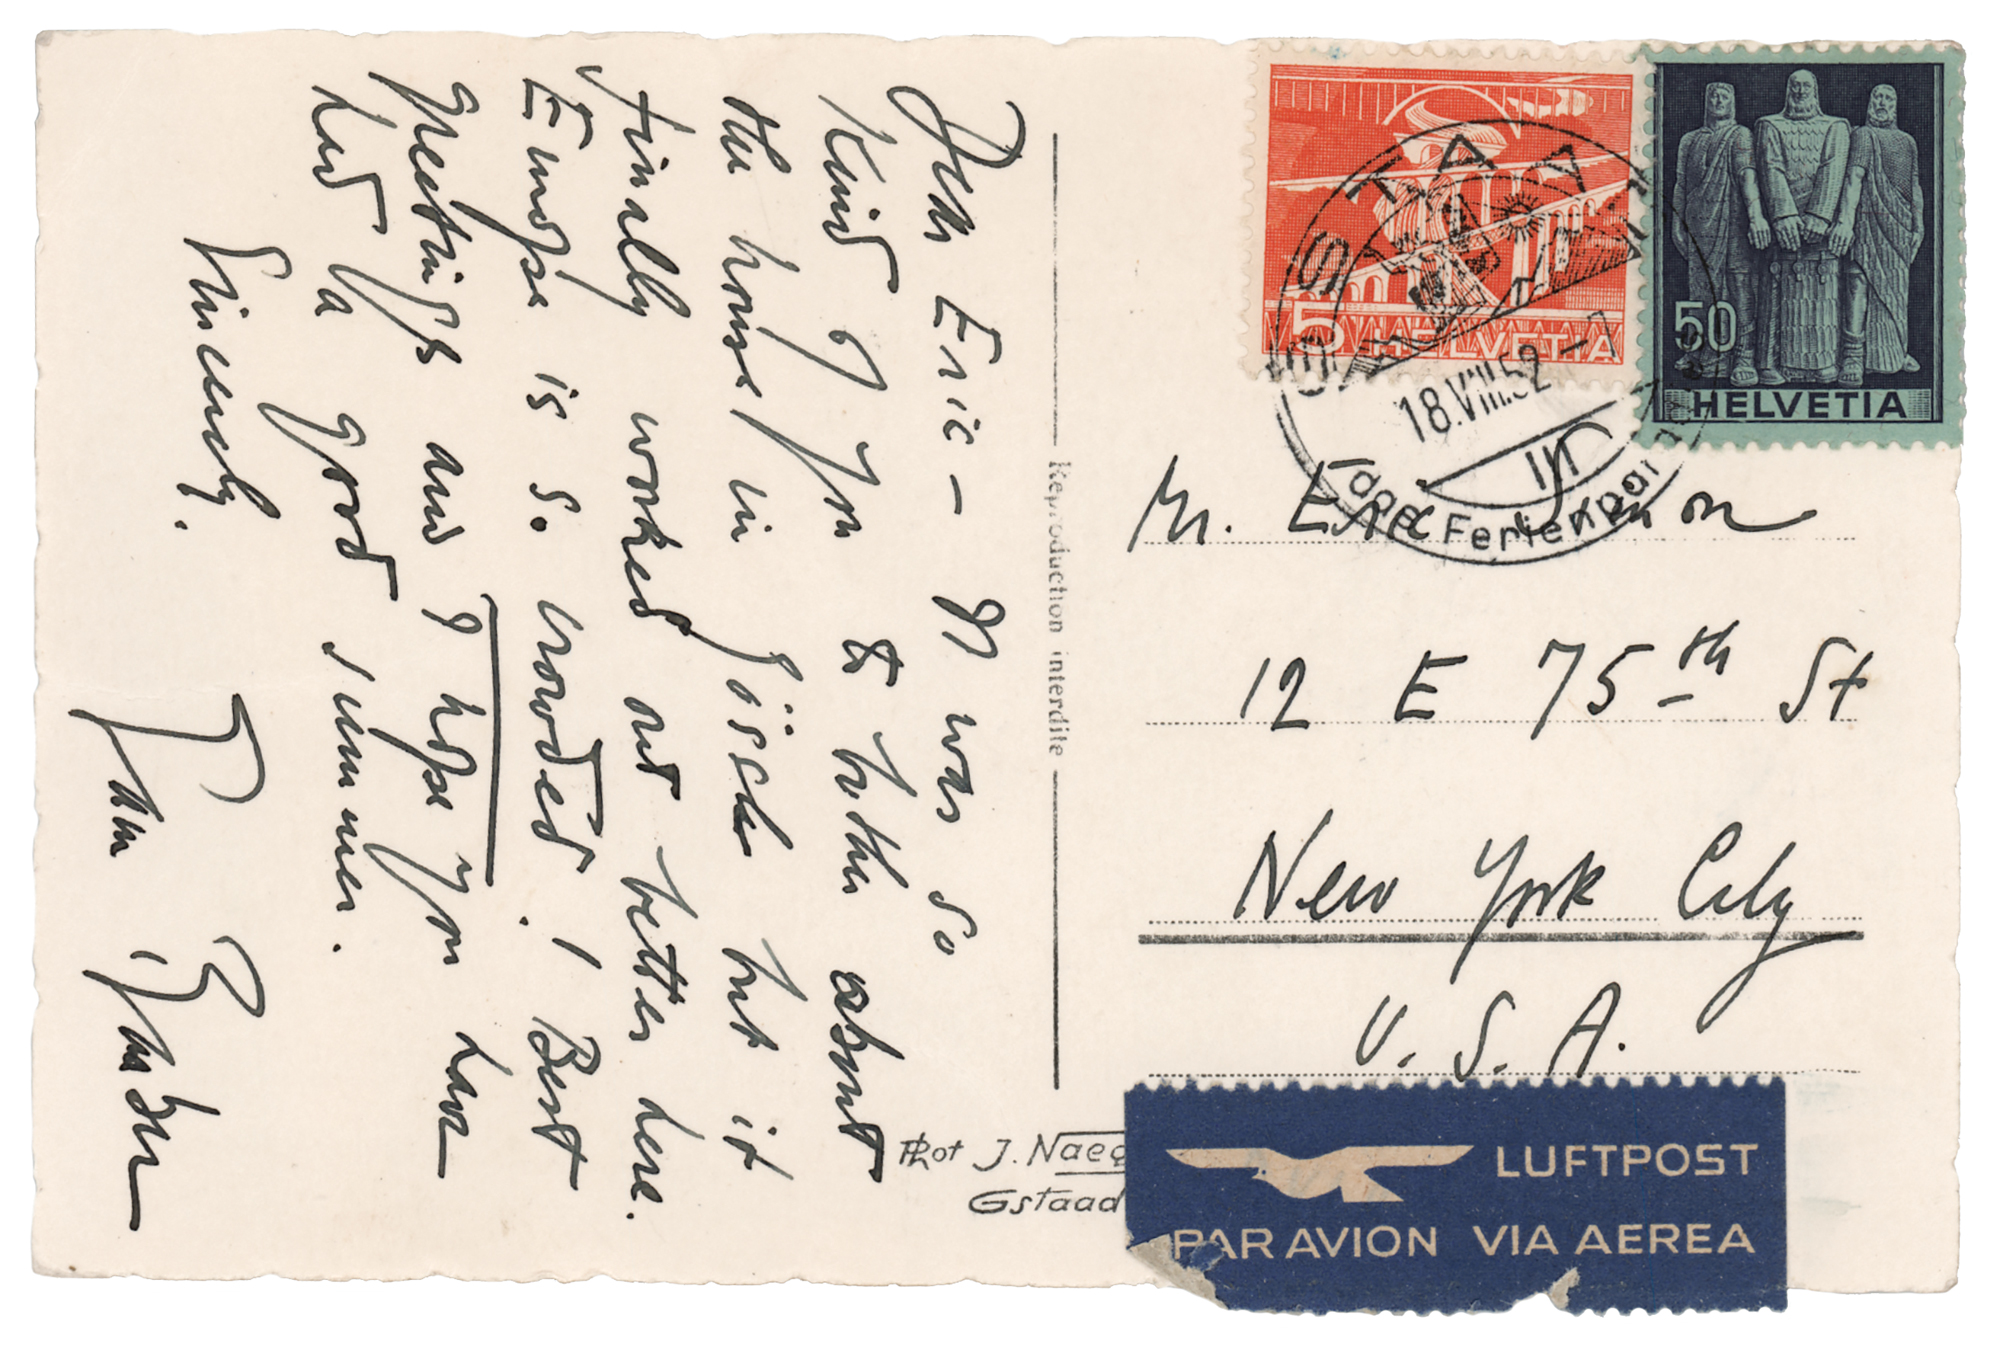 Dear Eric - It was so
kind of you to bother about
the house in Gösch but it
finally worked out better here.
Europe is so crowded! Best
greetings and I hope you have
had a good summer.
Sincerely.
Reproduction interdite
Phot J. Naeg
Gstaad
5
HELVETIA
50
HELVETIA
GSTAAD
18.VIII.52 - 7
Ferienpar
Mr. Eric Simon
12 E 75th St
New York City
U. S. A.
LUFTPOST
PAR AVION VIA AEREA